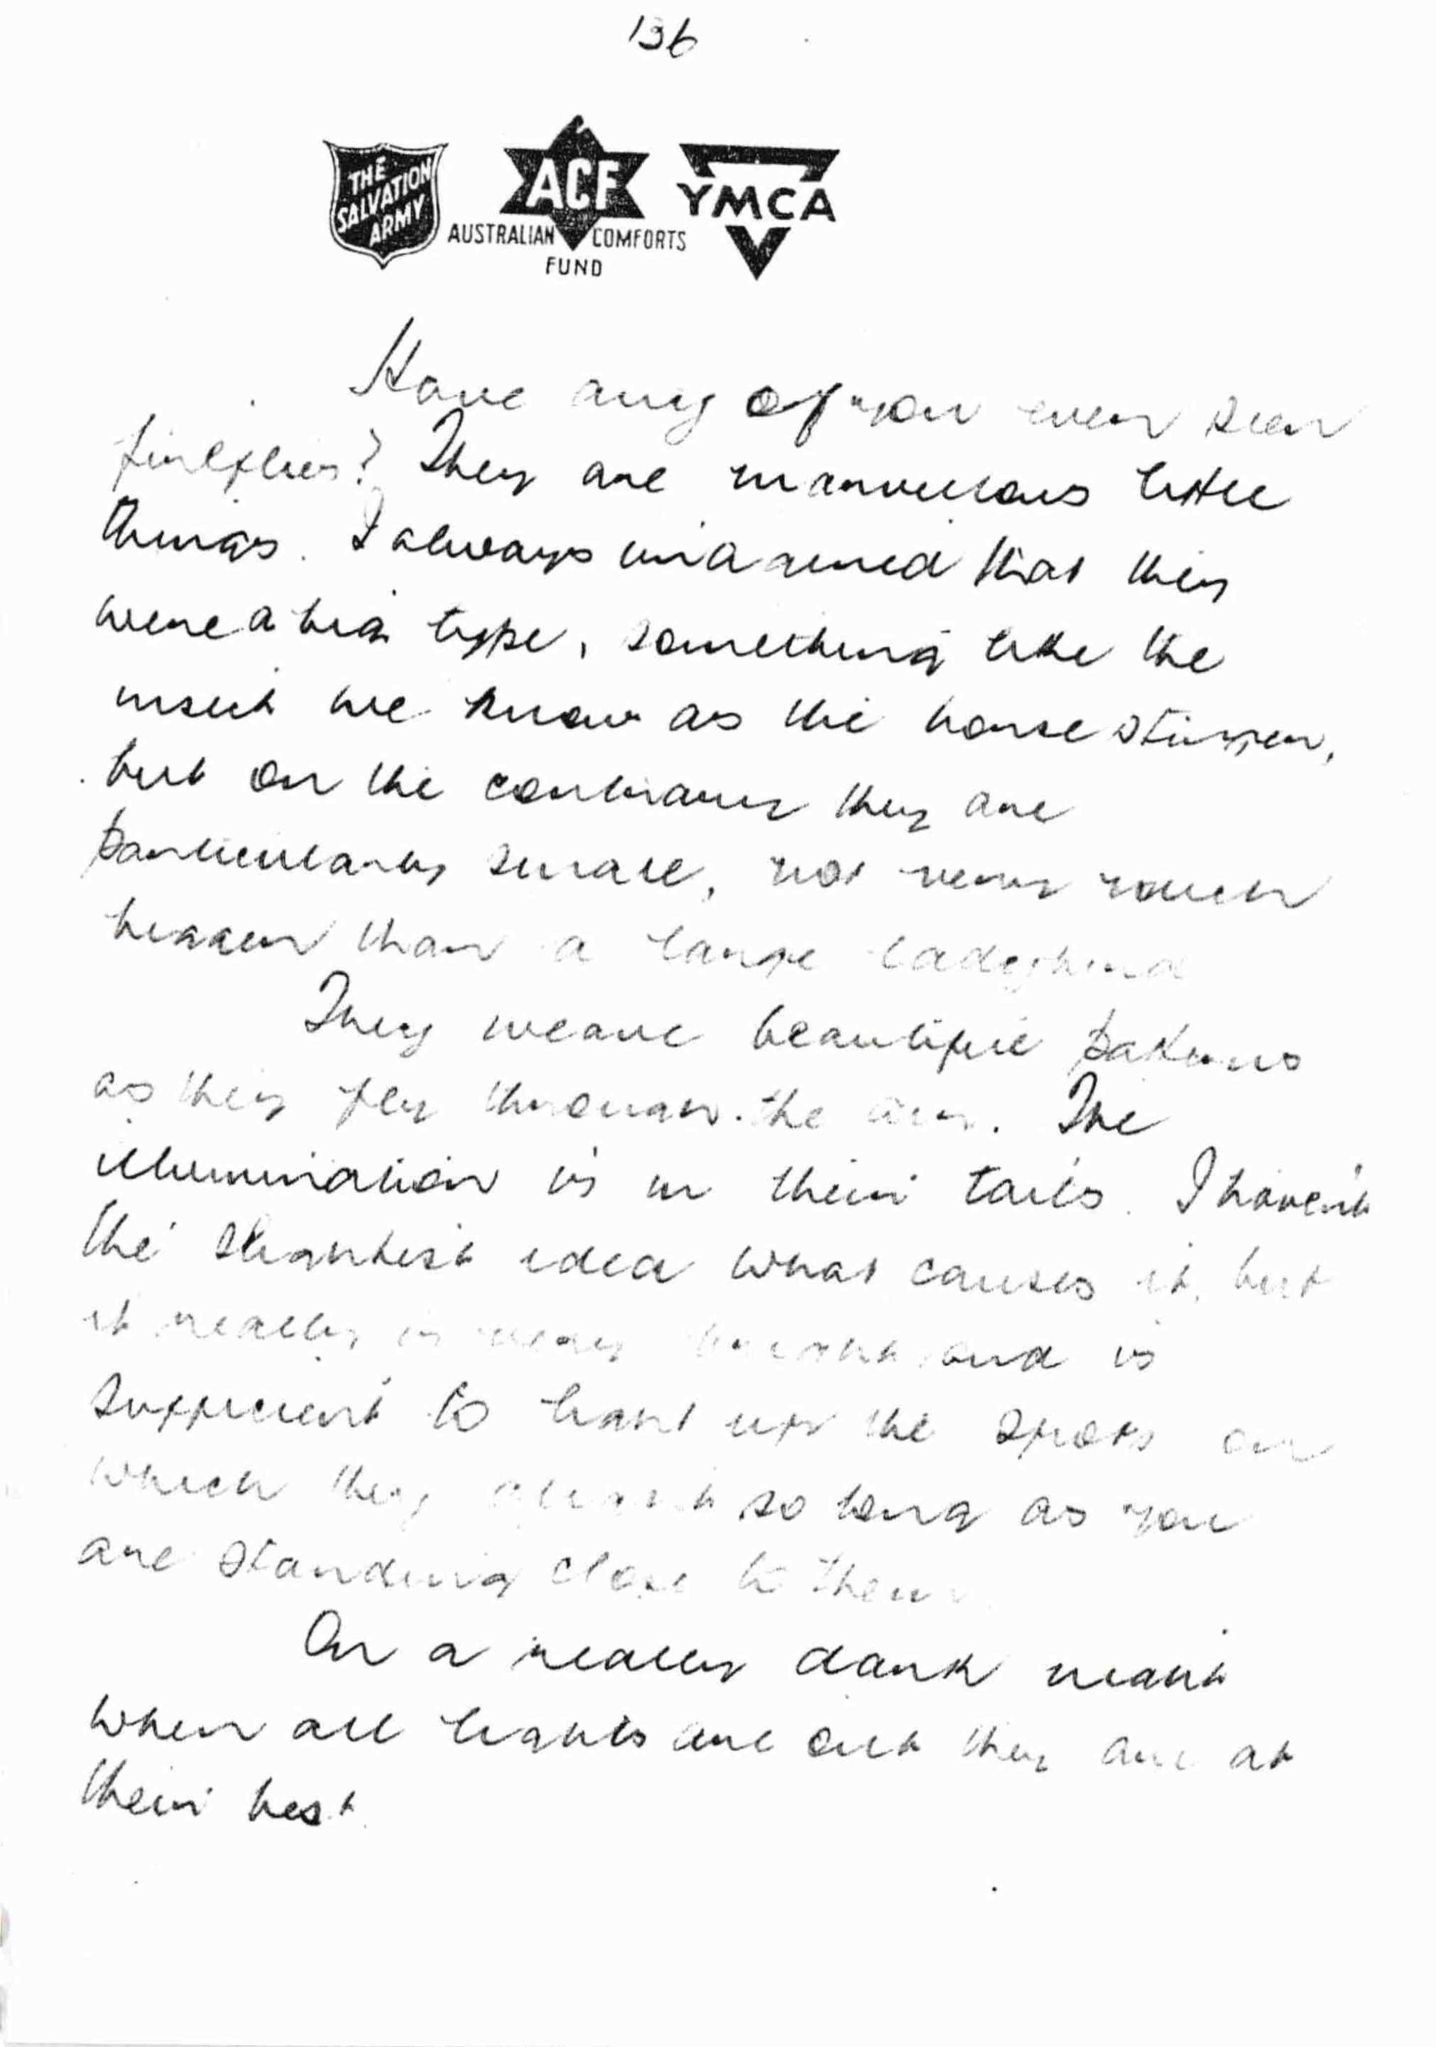 136
THE SALVATION ARMY
ACF
AUSTRALIAN COMFORTS FUND
YMCA
Have any of you ever seen
fireflies? They are marvellous little
things. I always imagined that they
were a big type, something like the
insect we know as the horse stinger,
but on the contrary they are
particularly small, not very much
bigger than a large ladybird
They weave beautiful patterns
as they fly through the air. The
illumination is in their tails. I haven't
the slightest idea what causes it, but
it really is very bright and is
sufficient to light up the spots on
which they alight so long as you
are standing close to them
On a really dark night
when all lights are out they are at
their best.